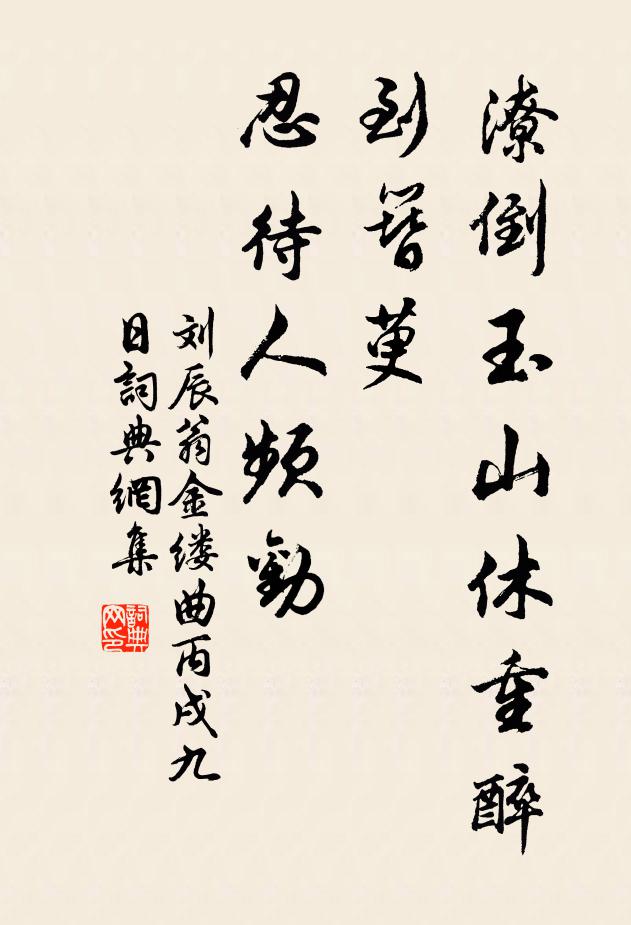 潦倒玉山休重醉
到簪萸
忍待人頻勸
刘辰翁金缕曲丙戌九
日詞典網集
詞典网印